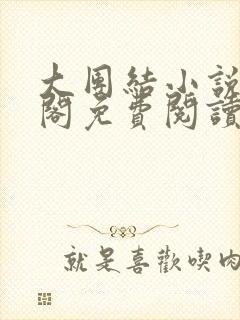 大團結小說
閣免費閱讀
就是喜歡喫肉